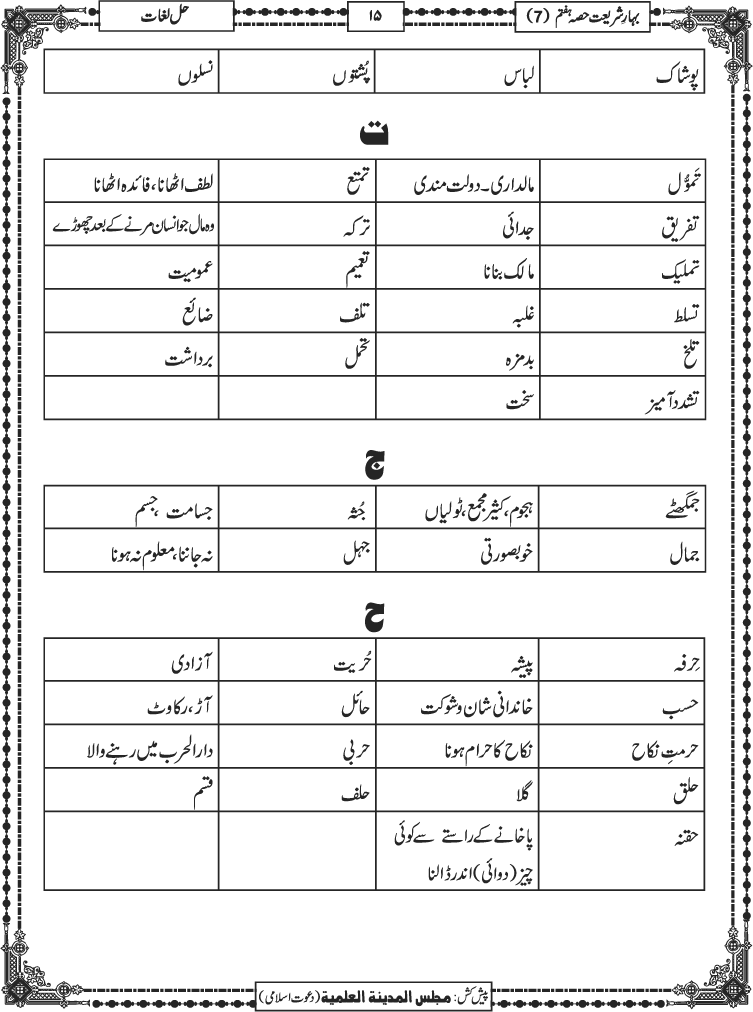 بہارِ شریعت حصہ ہفتم (7)
۱۵
حل لغات
پوشاک لباس پُشتوں نسلوں
ت
تَموُّل مالداری۔دولت مندی تمتع لطف اٹھانا،فائدہ اٹھانا
تفریق جدائی ترکہ وہ مال جو انسان مرنے کے بعد چھوڑے
تملیک مالک بنانا تعمیم عمومیت
تسلط غلبہ تلف ضائع
تلخ بدمزہ تحمل برداشت
تشدد آمیز سخت
ج
جمگھٹے ہجوم،کثیر مجمع،ٹولیاں جُثہ جسامت ،جسم
جمال خوبصورتی جہل نہ جاننا،معلوم نہ ہونا
ح
حِرفہ پیشہ حُریت آزادی
حسب خاندانی شان وشوکت حائل آڑ،رکاوٹ
حرمتِ نکاح نکاح کا حرام ہونا حربی دارالحرب میں رہنے والا
حلق گلا حلف قسم
حقنہ پاخانے کے راستے سے کوئی
چیز (دوائی) اندر ڈالنا
پیش کش: مجلس المدینۃ العلمیۃ (دعوت اسلامی)